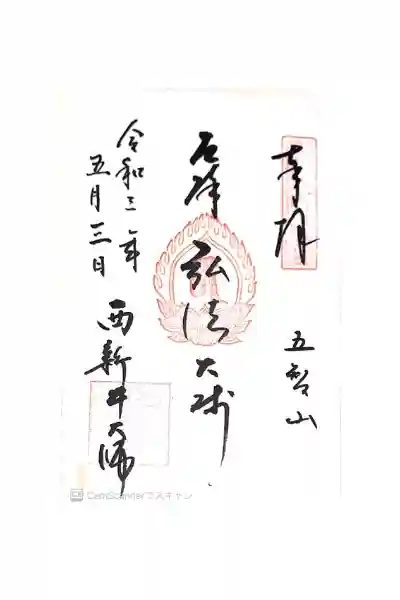 奉拝
五智山
厄除 弘法大師
令和三年
五月三日
西新井大師
CamScannerでスキャン